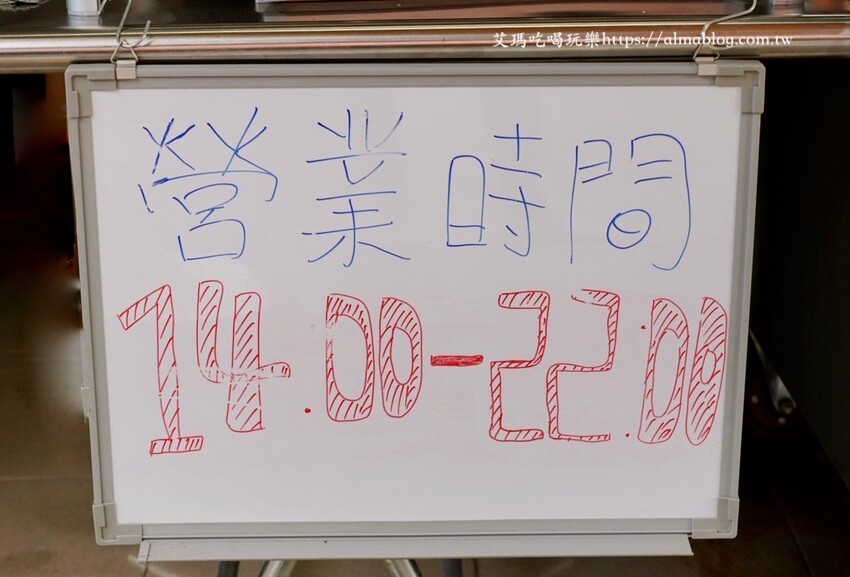 艾瑪吃喝玩樂https://almablog.com.tw
營業時間
14.00-22:00